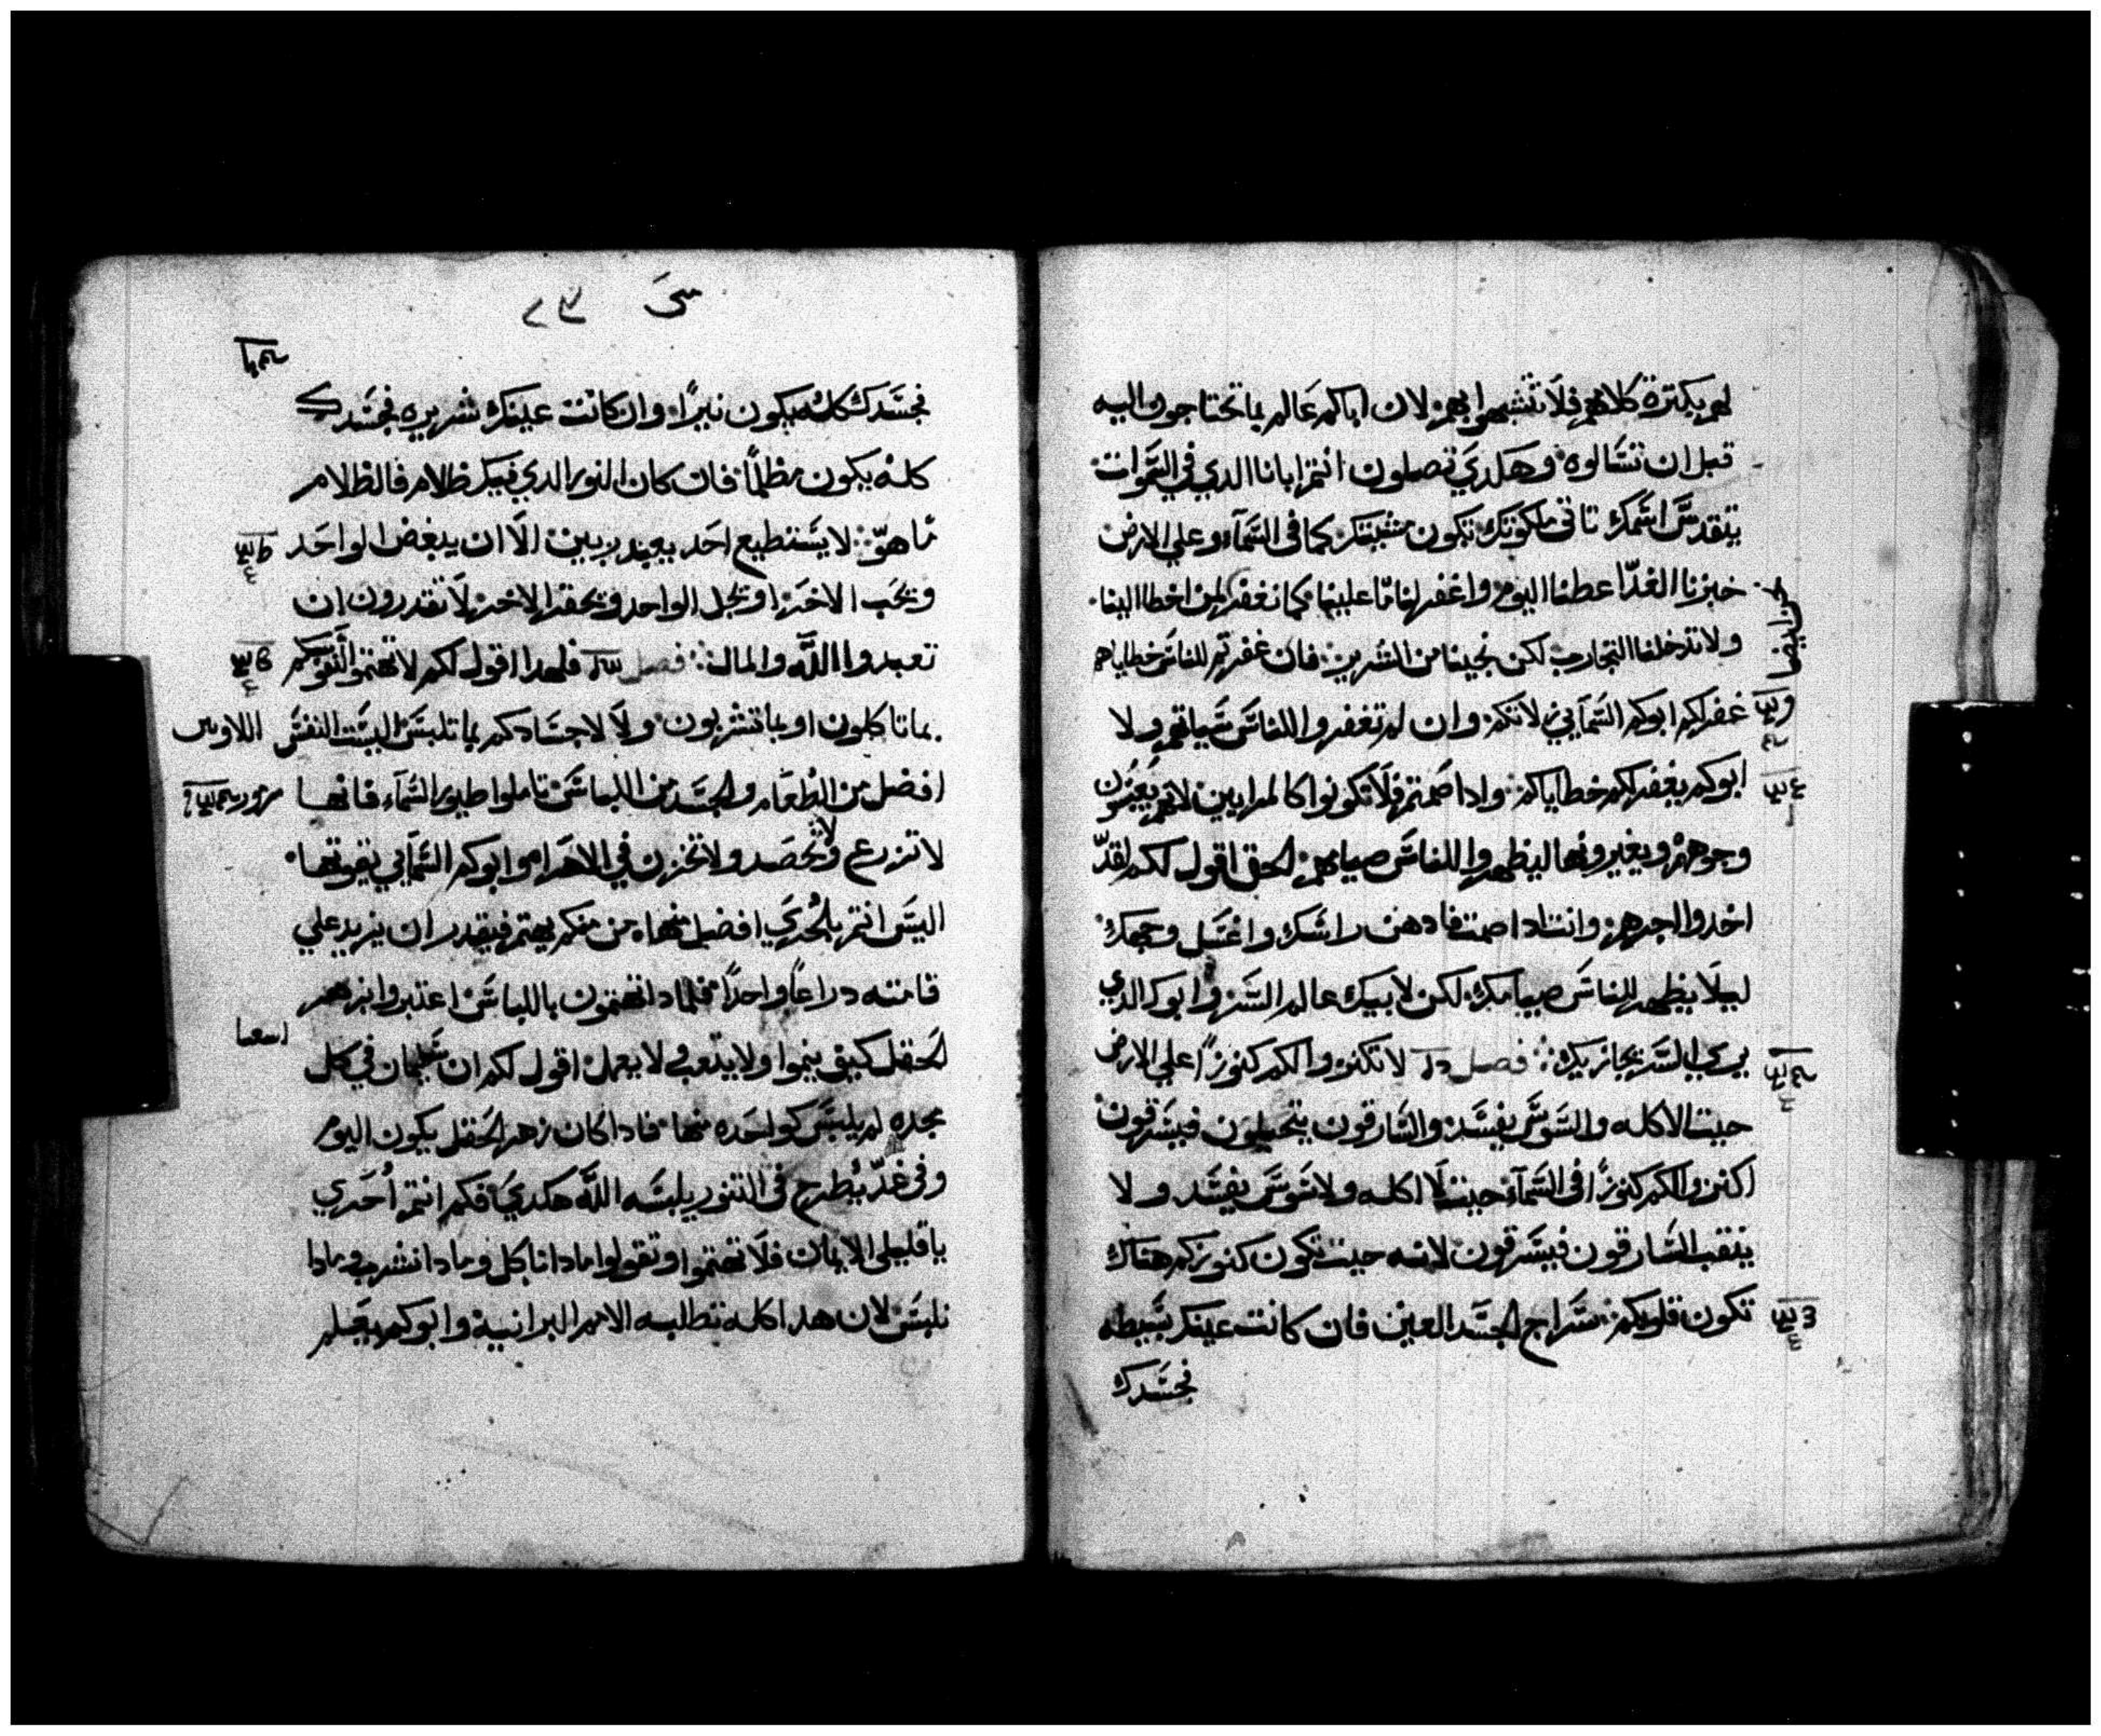 لهم بكترة كلامهم فلا تشبهوا بهم لان اباكم عالم بما تحتاجون اليه
قبل ان تسالوه وهكدي تصلون انتم ابانا الدي في السموات
يتقدس اسمك تاتي ملكوتك تكون مشيتك كما في السماء وعلي الارض
خبزنا الغدا عطنا اليوم واغفر لنا ما علينا كما نغفر لمن اخطا الينا
ولا تدخلنا التجارب لكن نجينا من الشرير فان غفرتم للناس خطاياهم
غفر لكم ابوكم السمايي لانكم وان لم تغفروا للناس سياتهم ولا
ابوكم يغفر لكم خطاياكم وادا صمتم فلا تكونوا كالمرايين لانهم يعبسون
وجوههم ويغيرونها ليظهروا للناس صيامهم الحق اقول لكم لقد
اخدوا اجرهم وانت ادا صمت فادهن راسك واغسل وجهك
ليلا يظهر للناس صيامك لكن لابيك عالم السر وابوك الدي
يري السر يجازيك فصل لا تكنزوا لكم كنوزا علي الارض
حيت الاكله والسوس يفسد والسارقون يتحيلون فيسرقون
اكنزوا لكم كنوزا في السماء حيت لا اكله ولا سوس يفسد ولا
ينقب السارقون فيسرقون لانه حيت تكون كنوزكم هناك
تكون قلوبكم سراج الجسد العين فان كانت عينك بسيطه
فجسدك
٢٣
فجسدك كله يكون نيرا وان كانت عينك شريره فجسدك
كله يكون مظلما فان كان النور الدي فيك ظلام فالظلام
ما هو لا يستطيع احد يعبد ربين الا ان يبغض الواحد
ويحب الاخر او يجل الواحد ويحقر الاخر لا تقدرون ان
تعبدوا الله والمال فصل فلهدا اقول لكم لا تهتموا لنفوسكم
بما تاكلون او بما تشربون ولا لاجسادكم بما تلبس اليست النفس
افضل من الطعام والجسد من اللباس تاملوا طيور السماء فانها
لا تزرع ولا تحصد ولا تخزن في الاهراء وابوكم السمايي يقوتها
اليس انتم بالحري افضل منها من منكم يهتم فيقدر ان يزيد علي
قامته دراعا واحدا فلمادا تهتمون باللباس اعتبروا بزهر
الحقل كيف ينموا ولا يتعب ولا يعمل اقول لكم ان سليمان في كل
مجده لم يلبس كواحده منها فادا كان زهر الحقل يكون اليوم
وفي غد يطرح في التنور يلبسه الله هكدي فكم انتم احري
يا قليلي الايمان فلا تهتموا وتقولوا مادا ناكل ومادا نشرب ومادا
نلبس لان هدا كله تطلبه الامم البرانية وابوكم يعلم